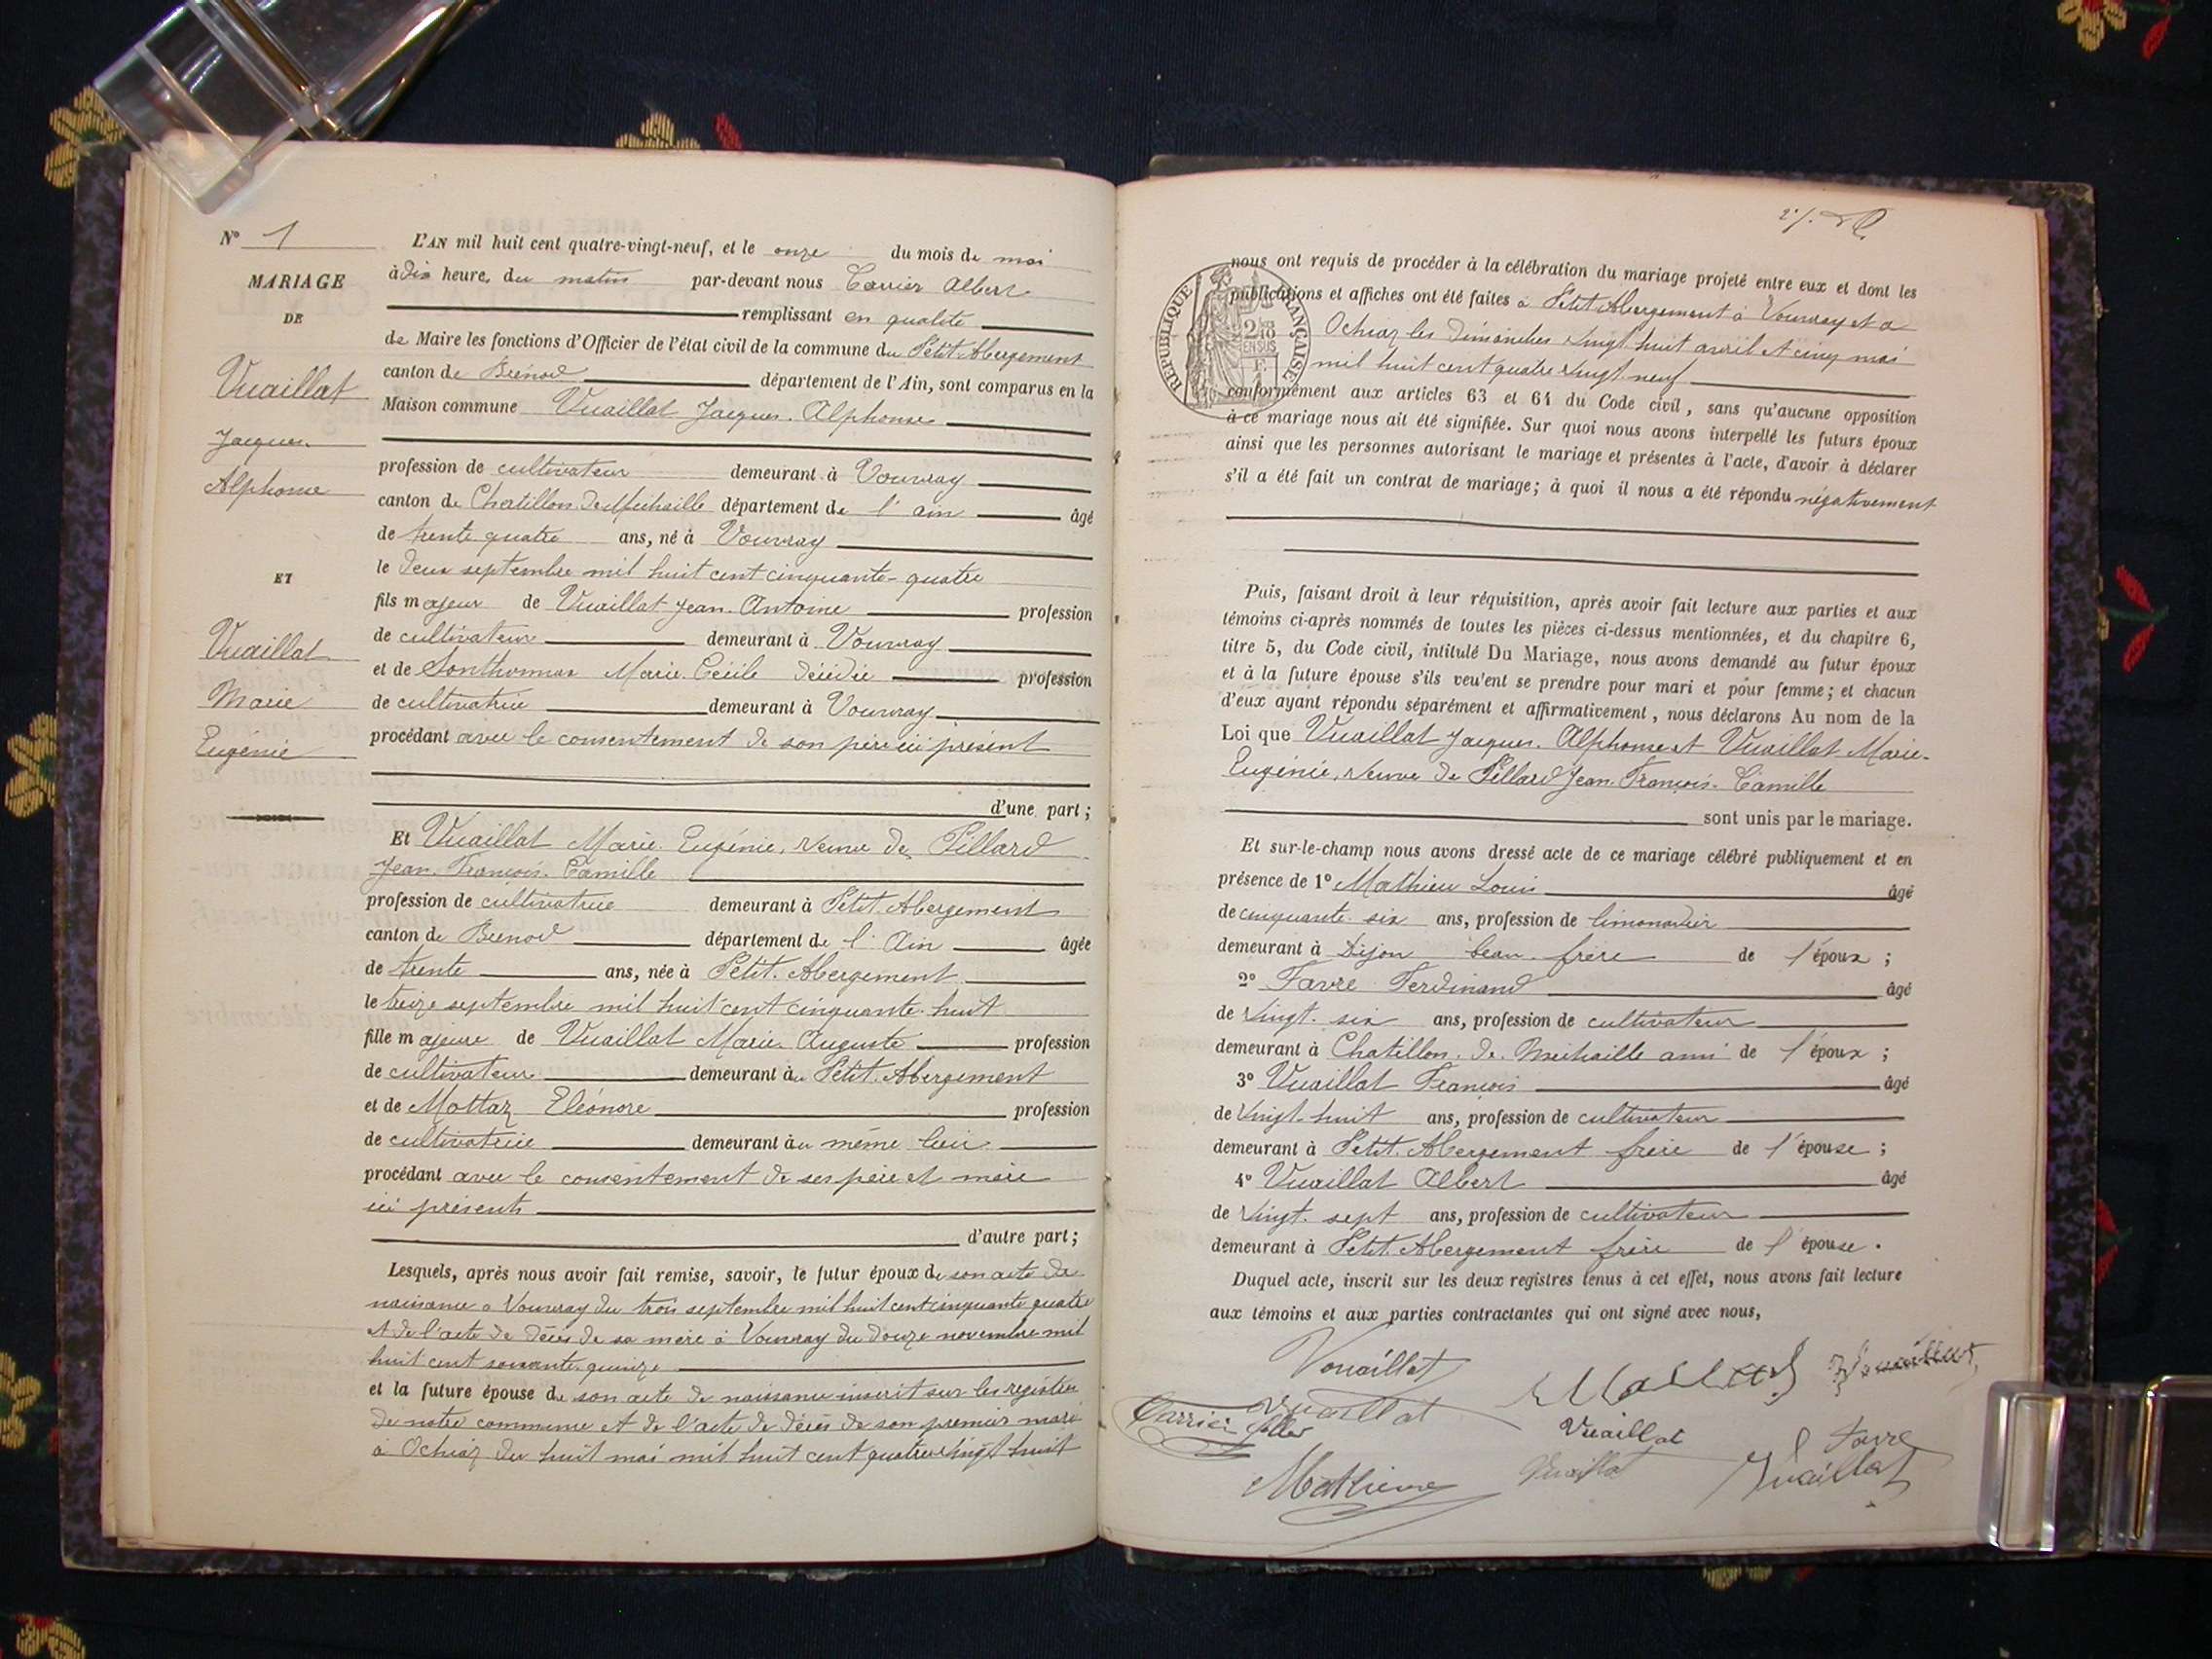 N° 1
MARIAGE
DE
Vuaillat
Jacques
Alphonse
ET
Vuaillat
Marie
Eugénie
L'AN mil huit cent quatre-vingt-neuf, et le onze du mois de mai
à dix heures du matin par-devant nous Carrier Albert
remplissant en qualité
de Maire les fonctions d'Officier de l'état civil de la commune du Petit Abergement
canton de Brénod département de l'Ain, sont comparus en la
Maison commune Vuaillat Jacques Alphonse
profession de cultivateur demeurant à Vouvray
canton de Chatillon de Michaille département de l'ain âgé
de trente quatre ans, né à Vouvray
le deux septembre mil huit cent cinquante-quatre
fils majeur de Vuaillat Jean Antoine profession
de cultivateur demeurant à Vouvray
et de Sonthonnax Marie Cécile décédée profession
de cultivatrice demeurant à Vouvray
procédant avec le consentement de son père ici présent
d'une part ;
Et Vuaillat Marie Eugénie, veuve de Pillard
Jean François Camille
profession de cultivatrice demeurant à Petit Abergement
canton de Brenod département de l'Ain âgée
de trente ans, née à Petit Abergement
le treize septembre mil huit cent cinquante huit
fille majeure de Vuaillat Marie Auguste profession
de cultivateur demeurant au Petit Abergement
et de Mottaz Eléonore profession
de cultivatrice demeurant au même lieu
procédant avec le consentement de ses père et mère
ici présents
d'autre part ;
Lesquels, après nous avoir fait remise, savoir, le futur époux de son acte de
naissance à Vouvray du trois septembre mil huit cent cinquante quatre
et de l'acte de décès de sa mère à Vouvray du douze novembre mil
huit cent soixante quinze
et la future épouse de son acte de naissance inscrit sur les registres
de notre commune et de l'acte de décès de son premier mari
à Ochiaz du huit mai mil huit cent quatre vingt huit
RÉPUBLIQUE FRANÇAISE
nous ont requis de procéder à la célébration du mariage projeté entre eux et dont les
publications et affiches ont été faites à Petit Abergement à Vouvray et à
Ochiaz les dimanches vingt huit avril et cinq mai
mil huit cent quatre vingt neuf
conformément aux articles 63 et 64 du Code civil, sans qu'aucune opposition
à ce mariage nous ait été signifiée. Sur quoi nous avons interpellé les futurs époux
ainsi que les personnes autorisant le mariage et présentes à l'acte, d'avoir à déclarer
s'il a été fait un contrat de mariage ; à quoi il nous a été répondu négativement
Puis, faisant droit à leur réquisition, après avoir fait lecture aux parties et aux
témoins ci-après nommés de toutes les pièces ci-dessus mentionnées, et du chapitre 6,
titre 5, du Code civil, intitulé Du Mariage, nous avons demandé au futur époux
et à la future épouse s'ils veu'ent se prendre pour mari et pour femme ; et chacun
d'eux ayant répondu séparément et affirmativement, nous déclarons Au nom de la
Loi que Vuaillat Jacques Alphonse et Vuaillat Marie
Eugénie, veuve de Pillard Jean François Camille
sont unis par le mariage.
Et sur-le-champ nous avons dressé acte de ce mariage célébré publiquement et en
présence de 1° Mathieu Louis âgé
de cinquante six ans, profession de limonadier
demeurant à Dijon beau frère de l'époux ;
2° Favre Ferdinand âgé
de vingt six ans, profession de cultivateur
demeurant à Chatillon de Michaille ami de l'époux ;
3° Vuaillat François âgé
de vingt huit ans, profession de cultivateur
demeurant à Petit Abergement frère de l'épouse ;
4° Vuaillat Albert âgé
de vingt sept ans, profession de cultivateur
demeurant à Petit Abergement frère de l'épouse.
Duquel acte, inscrit sur les deux registres tenus à cet effet, nous avons fait lecture
aux témoins et aux parties contractantes qui ont signé avec nous,
Vouaillat
Vuaillat
Vuaillat
Favre
Vuaillat
Vuaillat